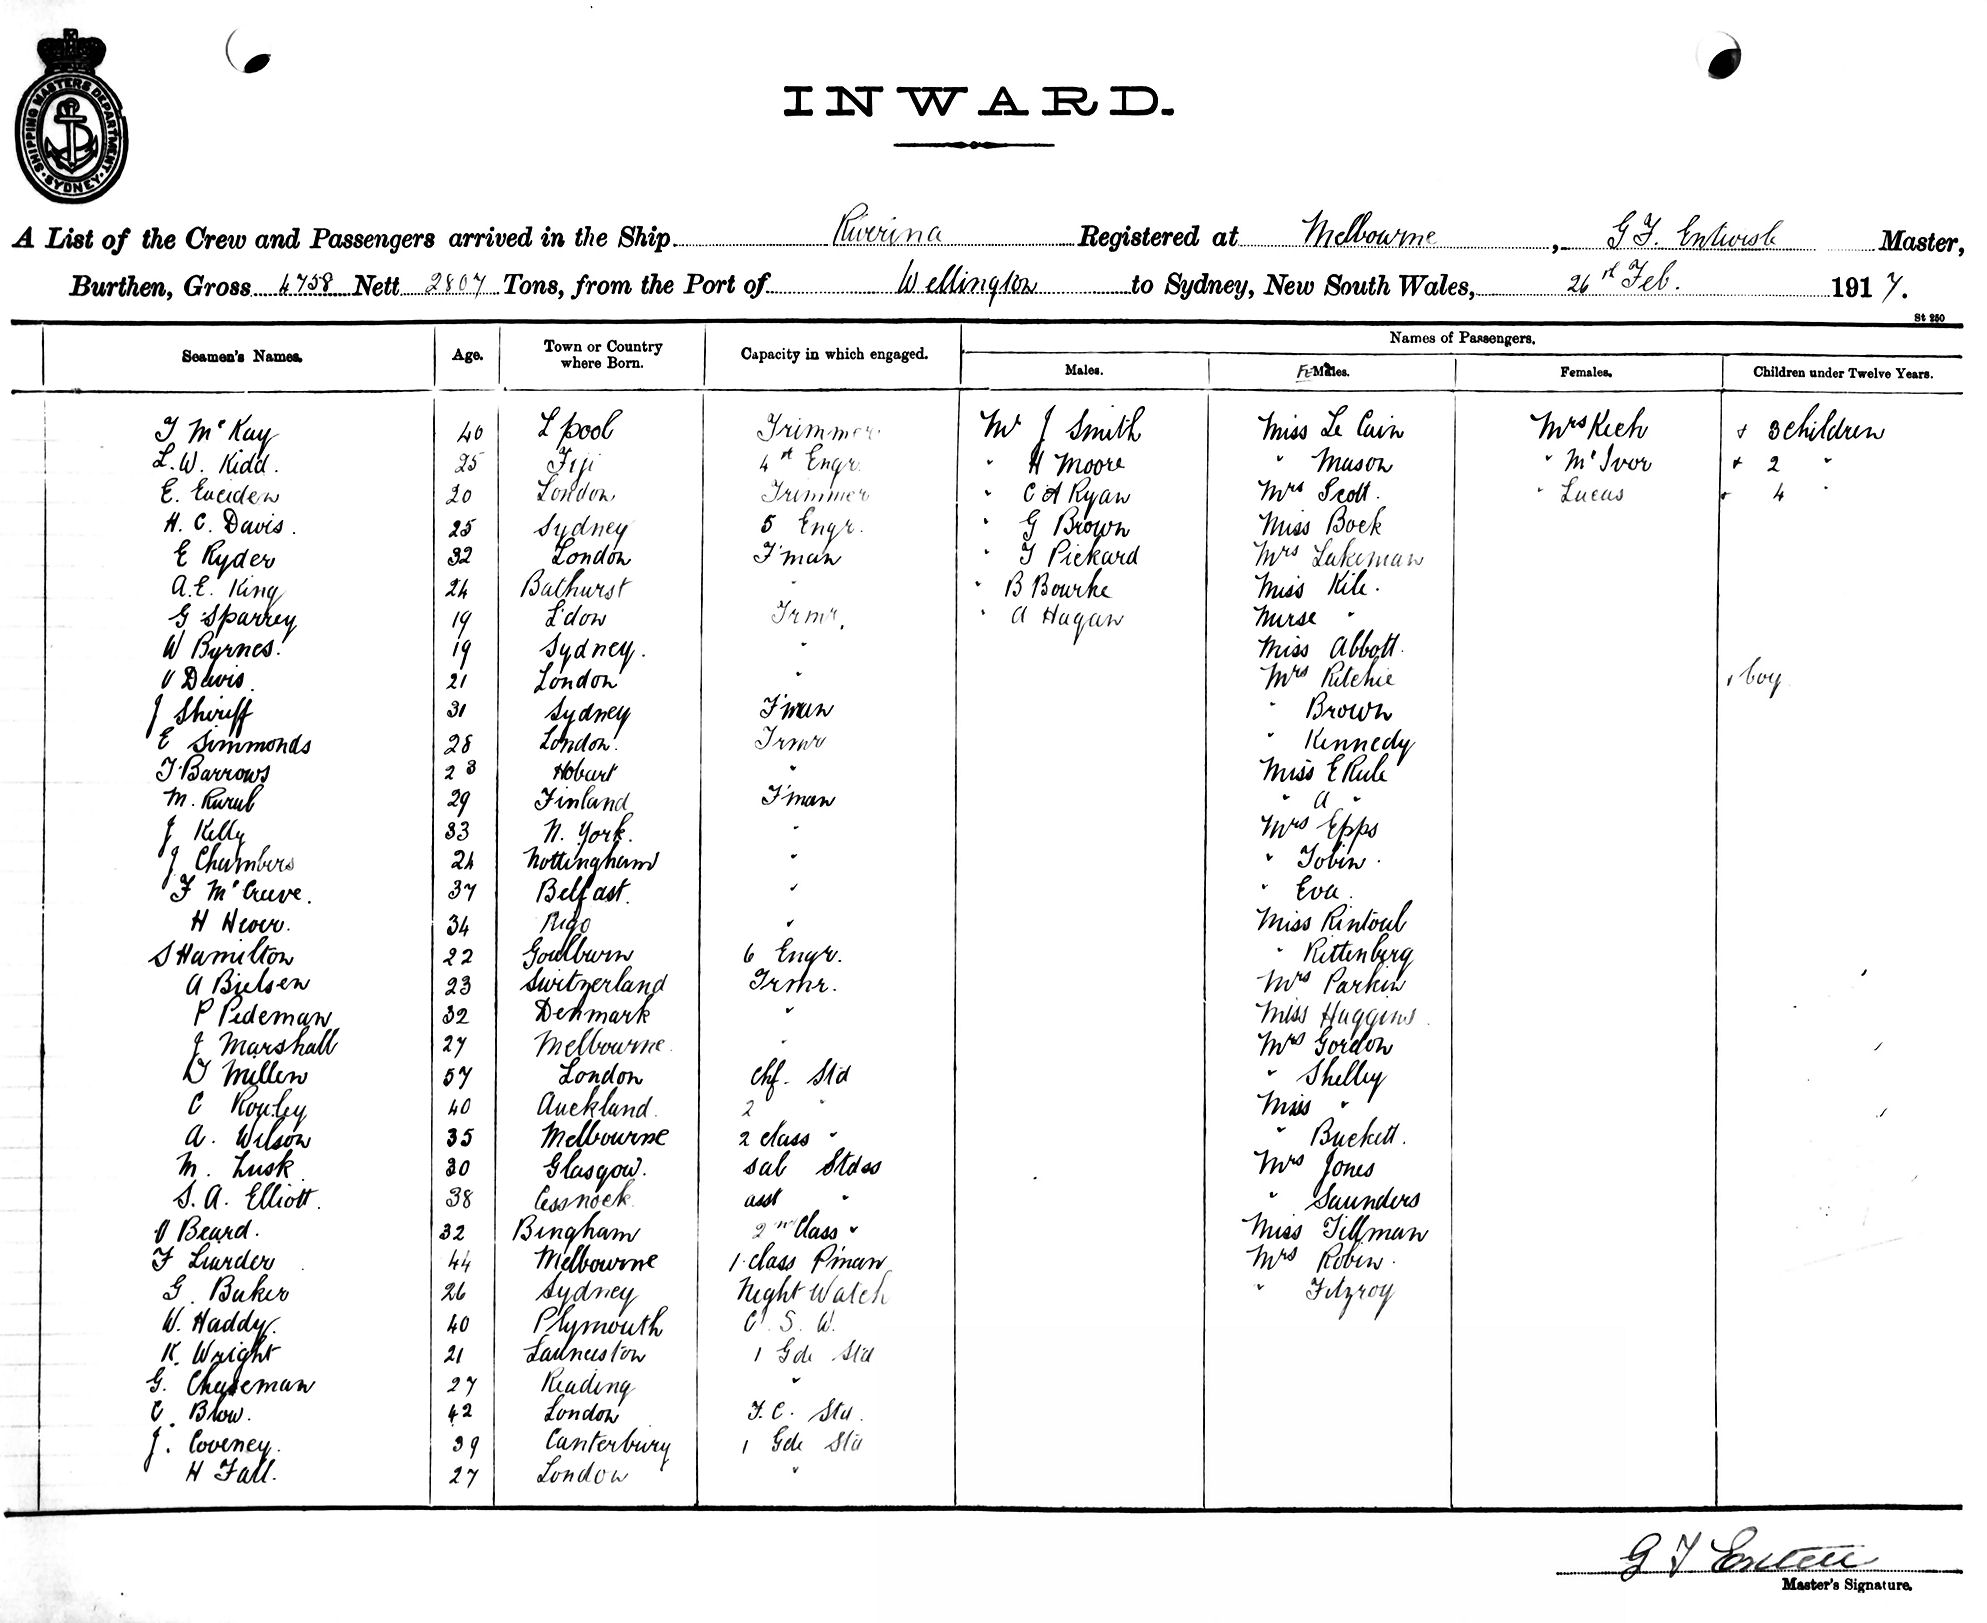 SHIPPING MASTERS DEPARTMENT · SYDNEY ·
INWARD.
A List of the Crew and Passengers arrived in the Ship Riverina Registered at Melbourne, G F. Entwisle Master,
Burthen, Gross 4758 Nett 2807 Tons, from the Port of Wellington to Sydney, New South Wales, 26 Feb. 1917.
St 250
Seamen's Names. Age. Town or Country where Born. Capacity in which engaged. Names of Passengers.
Males. FeMales. Females. Children under Twelve Years.
T McKay 40 L'pool Trimmer Mr J Smith Miss Le Cain Mrs Kech + 3 children
L. W. Kidd. 25 Fiji 4 Engr. " H Moore " Mason " McIvor + 2 "
E. 20 London Trimmer " C A Ryan Mrs Scott. " Lucas + 4 "
H. C. Davis. 25 Sydney 5 Engr. " G Brown Miss Bock
E Ryder 32 London F'man " T Pickard Mrs Lakeman
A. E. King 24 Bathurst " " B Bourke Miss Kile.
G Sparrey 19 L'don Trmr. " A Hagan Nurse "
W Byrnes. 19 Sydney. " Miss Abbott.
V Davis. 21 London " Mrs Ritchie + boy
J Sheriff 31 Sydney F'man " Brown
E Simmonds 28 London. Trmr " Kennedy
T Barrows 23 Hobart " Miss E Rule
M. 29 Finland F'man " A "
J Kelly 33 N. York. " Mrs Epps
J Chambers 24 Nottingham " " Tobin.
F McCreeve. 37 Belfast. " " Eva.
H 34 " Miss Rintoul
S Hamilton 22 Goulburn 6 Engr. " Rittenberg
A Bielsen 23 Switzerland Trmr. Mrs Parkin
P Pedeman 32 Denmark " Miss Huggins
J Marshall 27 Melbourne " Mrs Gordon
D Millen 57 London Chf. Std " Shelley
C Rowley 40 Auckland. 2 " Miss "
A. Wilson 35 Melbourne 2 class " " Buckett.
M. Lusk 30 Glasgow. Sal Stdss Mrs Jones
S. A. Elliott. 38 Cessnock asst " " Saunders
V Beard. 32 Bingham 2nd Class " Miss Tillman
F Liarder 44 Melbourne 1. class P'man Mrs Robin.
G. Baker 26 Sydney Night Watch " Fitzroy
W. Haddy. 40 Plymouth C. S. W.
K. Wright 21 Launceston 1 Gde Std
G. Cheeseman 27 Reading "
C. Blow. 42 London F. C. Std.
J. Coveney. 39 Canterbury 1 Gde Std
H Fall. 27 London "
G F Entwisle
Master's Signature.